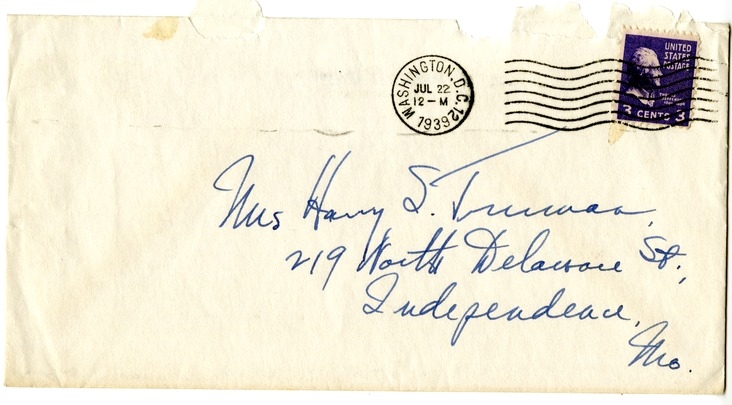 WASHINGTON, D.C. 12
JUL 22
12-M
1939
UNITED
STATES
POSTAGE
3 CENTS 3
Mrs Harry S. Truman,
219 North Delaware St.,
Independence,
Mo.